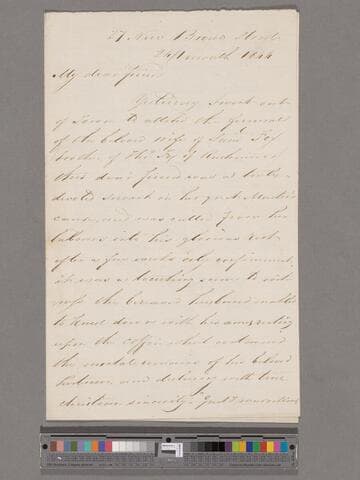 27 New Broad Street
24/1 month 1844
My dear friend
Yesterday I went out
of Town to attend the funeral
of the beloved wife of Saml Fox
brother of Thos Fox of
this dear friend was a truly
devoted servant in his great Master's
cause, and was called from his
labours into his glorious rest
after a few weeks only confinement,
it was a touching scene to
the bereaved husband unable
to kneel down with his arms resting
upon the coffin which contained
the mortal remains of his beloved
and declaring with true
Christian sincerity